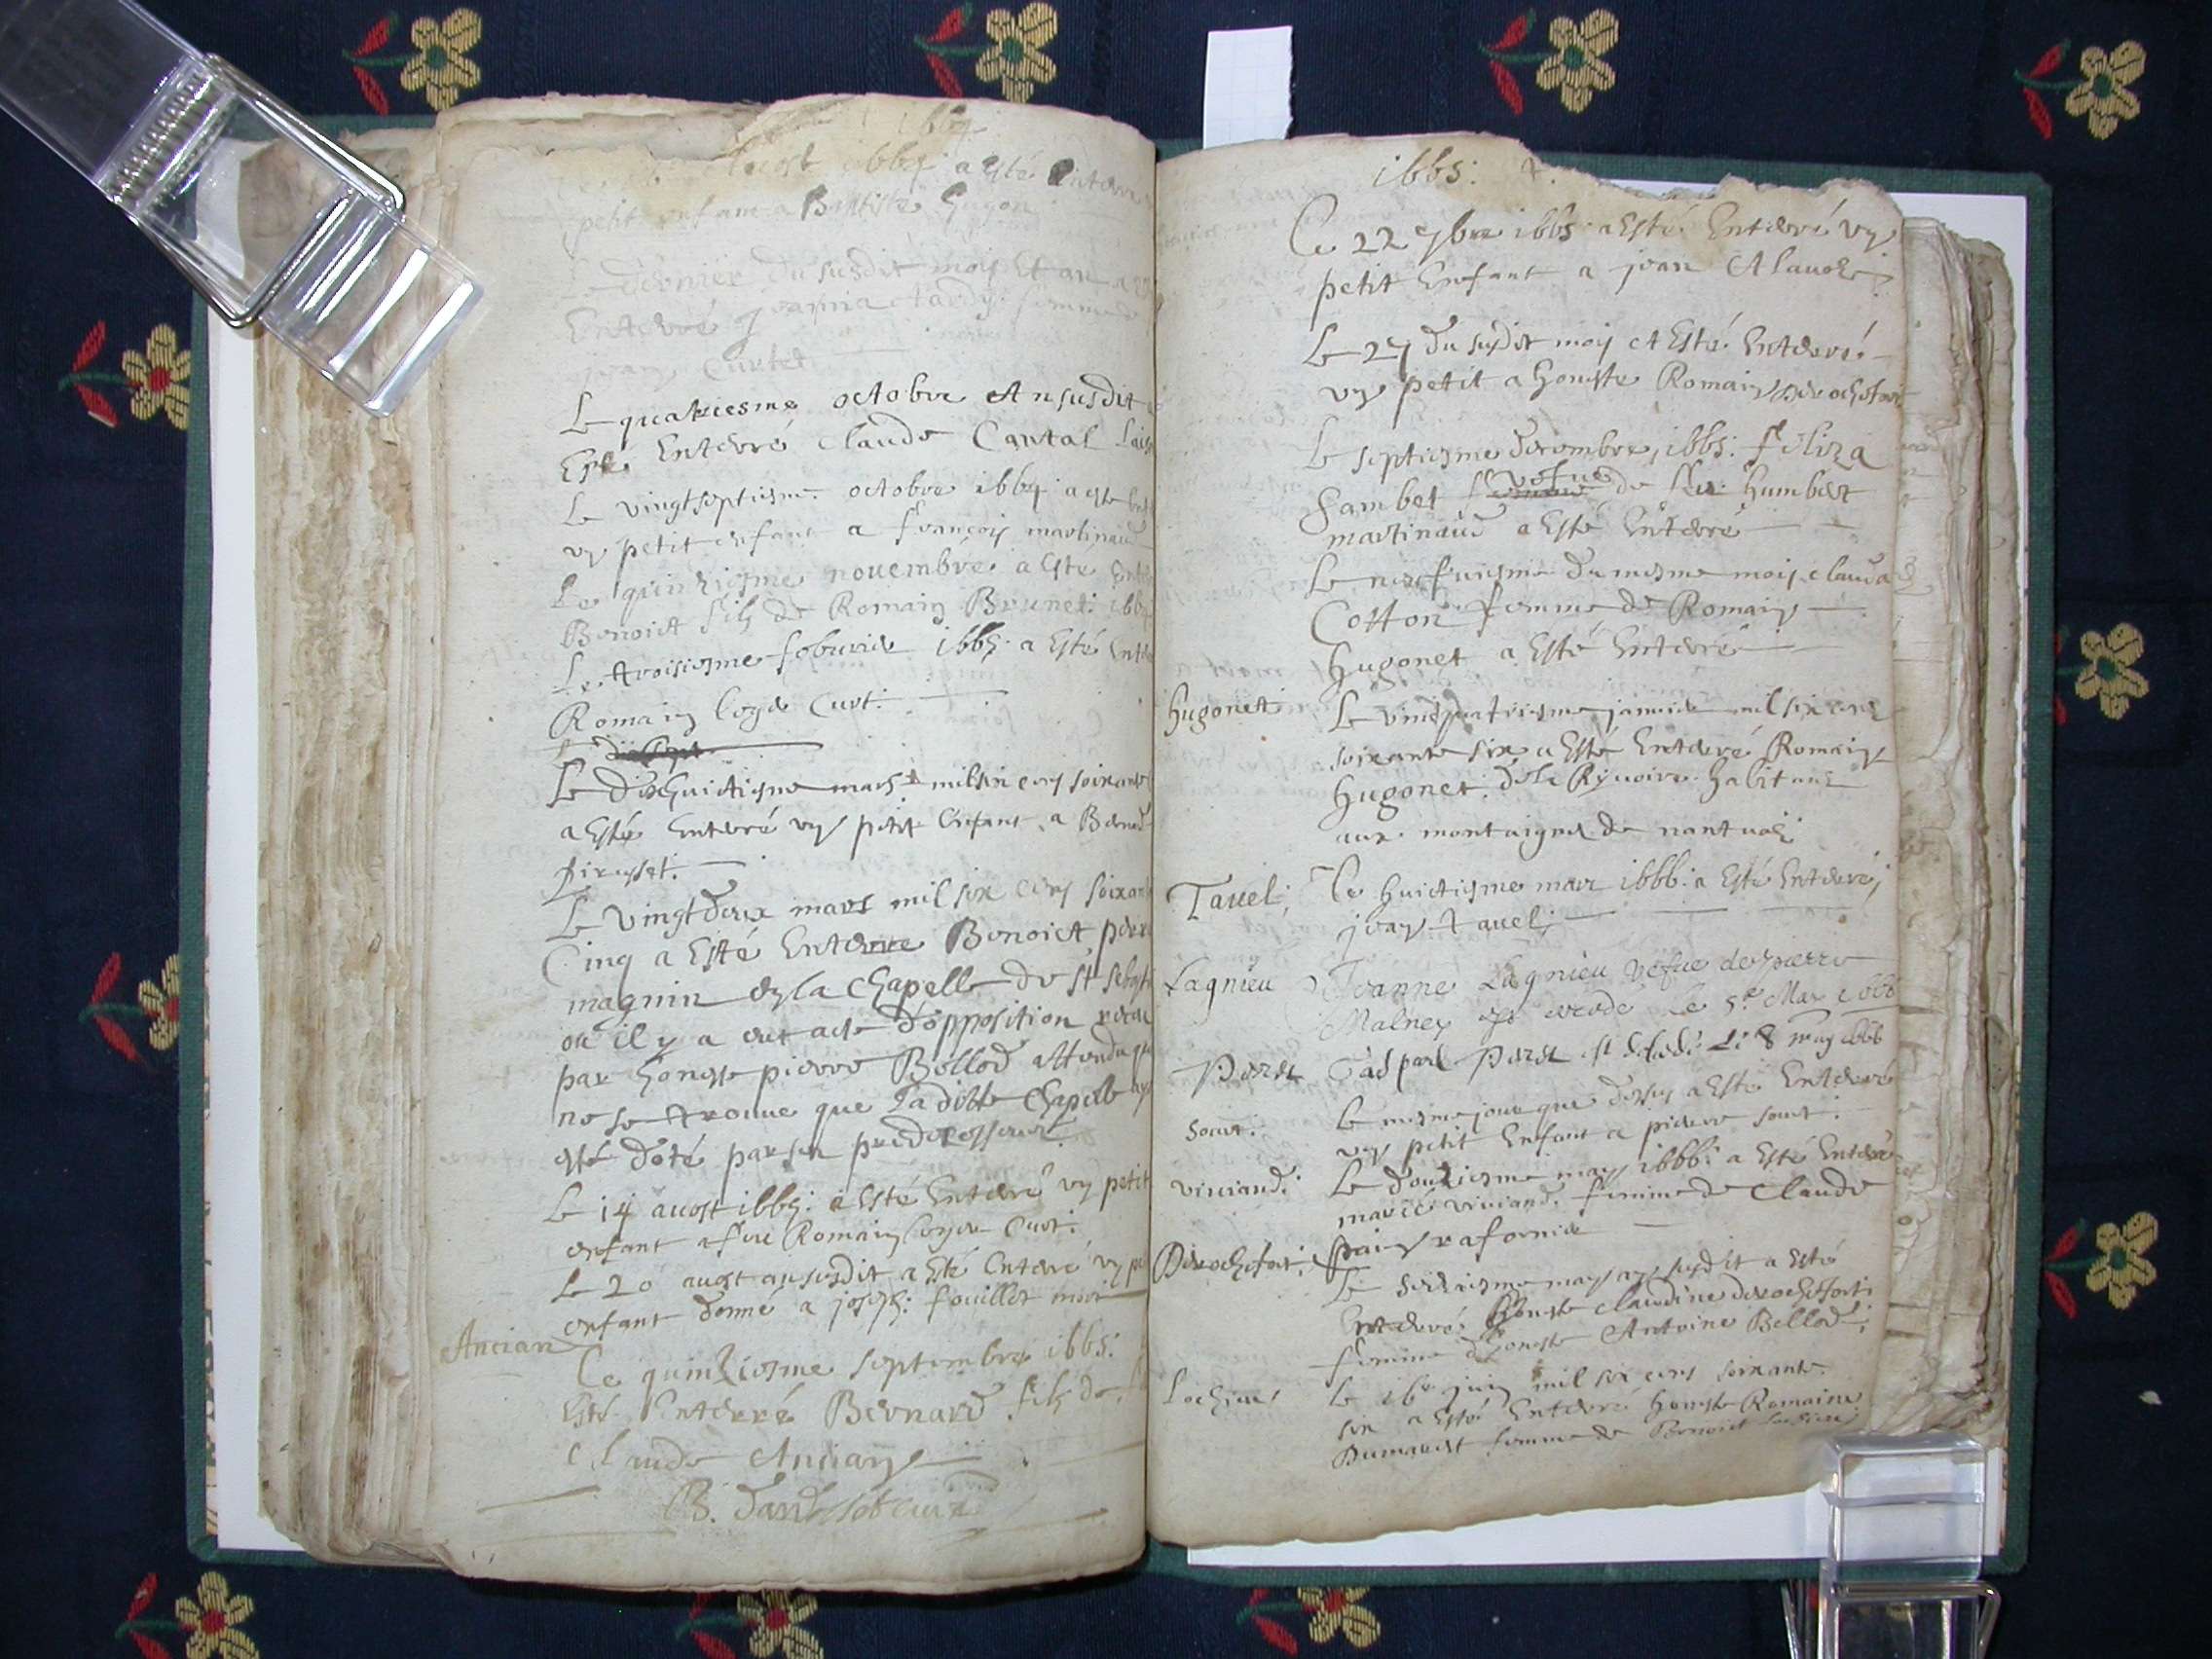 1664
aoust 1664 a esté enterre
petit enfant a Baptiste Hugon
Le dernier du susdit mois et an a
Enterré Jeanna Tardy femme
jean Curtet
Le quatriesme octobre An susdit
Esté Enterré Claude Cantal
Le vingtseptiesme octobre 1664 a este
vn petit enfant a françois martinaud
Le quinziesme nouembre a Esté
Benoict fils de Romain Brunet:
Le troisiesme feburier 1665: a Esté
Romain loyde Curt:
Le
Le dixhuictiesme mars mil six cens soixante
a Esté Enterré vn petit Enfant a
pirasset.
Le vingtdeux mars mil six cens soixante
Cinq a Esté Enterre Benoict
magnin en la Chapelle de st
ou il y a eut acte d'opposition
par honeste pierre Bellod attendu
ne se trouue que la ditte Chapelle
esté doté par son predecesseur.
Le 14 auost 1665: a Esté Enterré vn petit
enfant a feu Romain loyde Curt:
Le 20 auost an susdit a Esté Enterré vn
enfant donné a joseph: fouillet
Ancian
Le quinziesme septembre 1665:
Esté Enterré Bernard fils de
Claude Ancian
B. dard
1665:
Le 22 7bre 1665 a Esté Enterré vn
petit Enfant a jean
Le 27 du susdit mois A Esté Enterré
vn petit a honeste Romain Derochefort
Le septiesme decembre 1665: feliza
Gambet vefue de feu humbert
martinaud a Esté Enterré
Le neufuiesme du mesme mois clauda
Cotton femme de Romain
hugonet a Esté Enterré
hugonet: Le vintquatriesme januier mil six cens
soixante six a Esté Enterré Romain
hugonet de la Ryuoire habitant
aux montaignes de nantuas:
Tauel; Le huictiesme mars 1666: a Esté Enterré
jean Tauel;
Lagnieu Jeanne Lagnieu vefue de pierre
Malney decede le 5e May 1666
Perer Gaspard Perer est decedé Le 8 may 1666
sourt: Le mesme jour que dessus a Esté Enterré
vn petit Enfant a pierre sourt:
viuiand: Le douziesme may 1666: a Esté Enterré
marie viuiand femme de Claude
pain rafornier
Derochefort; Le seiziesme may an susdit a Esté
Enterré honeste claudine derochefort:
femme d'honeste Antoine Bellod;
Lochieu Le 16e juin mil six cens soixante
six a Esté Enterré honeste Romaine
Dumarest femme de Benoict Lochieu;